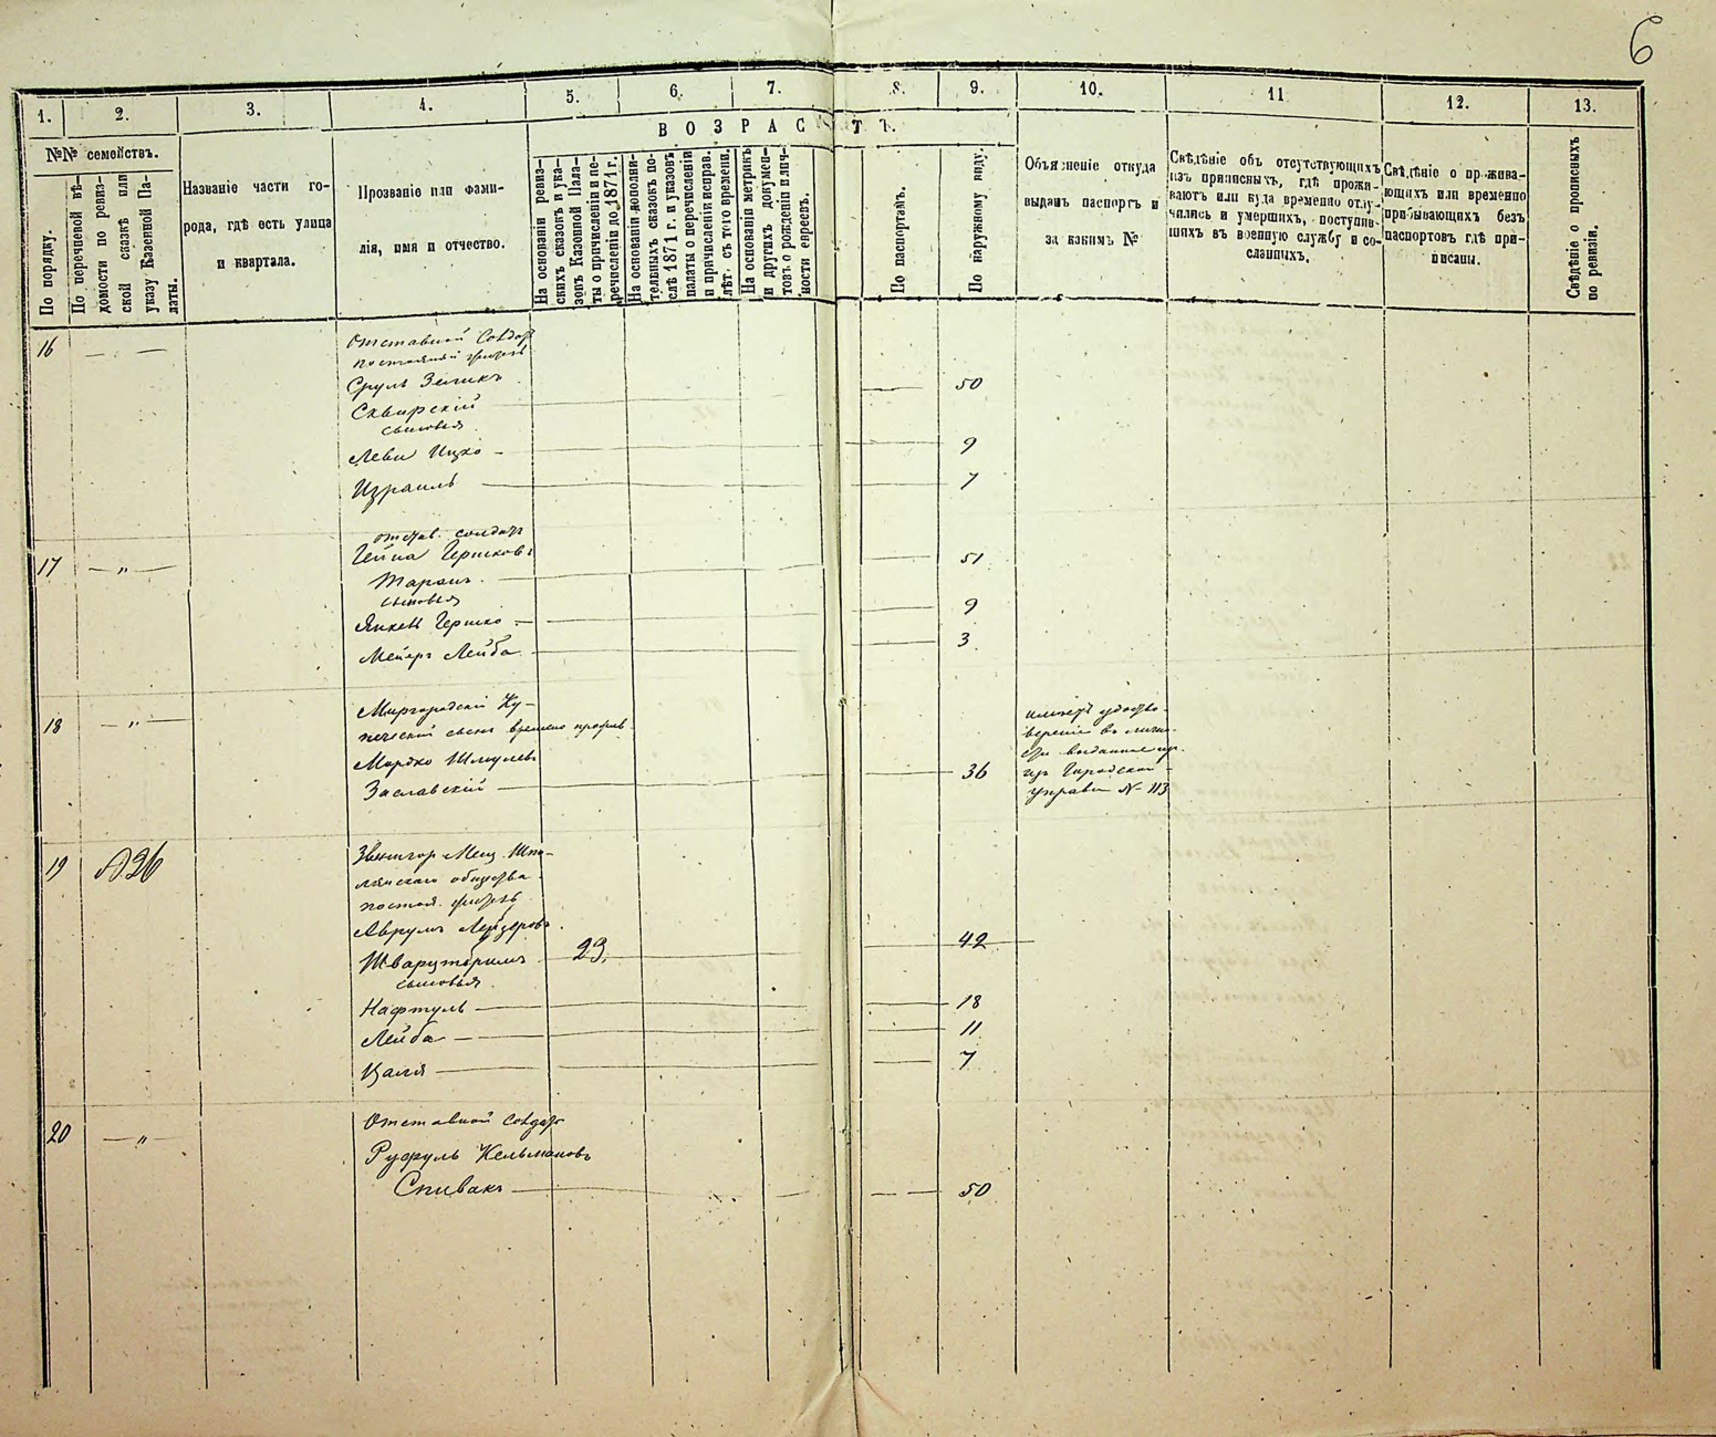 6
1. 2. 3. 4. 5. 6. 7. 8. 9. 10. 11 12. 13.
№№ семействъ.
В О З Р А С Т Ъ.
По порядку.
По перечневой вѣ-
домости по ревиз-
ской сказкѣ или
указу Казенной Па-
латы.
Названіе части го-
рода, гдѣ есть улица
и квартала.
Прозваніе или фами-
лія, имя и отчество.
На основаніи ревиз-
скихъ сказокъ и ука-
зовъ Казенной Пала-
ты о причисленіи и пе-
речисленіи до 1871 г.
На основаніи дополни-
тельныхъ сказокъ по-
слѣ 1871 г. и указовъ
палаты о перечисленіи
и причисленіи исправ.
лѣт. съ того времени.
На основаніи метрикъ
и другихъ докумен-
товъ о рожденіи и лич-
ности евреевъ.
По паспортамъ.
По наружному виду.
Объясненіе откуда
выданъ паспортъ и
за какимъ №
Свѣдѣніе объ отсутствующихъ
изъ приписныхъ, гдѣ прожи-
ваютъ или куда временно отлу-
чились и умершихъ, поступив-
шихъ въ военную службу и со-
сланныхъ.
Свѣдѣніе о прожива-
ющихъ или временно
прибывающихъ безъ
паспортовъ гдѣ при-
писаны.
Свѣдѣніе о прописныхъ
по ревизіи.
16 — — Отставной Солдатъ
Сруль Зеликъ 50
Сквирскій
сыновья
Леви Ицко — 9
Израиль 7
17 — „ — отстав. солдатъ
Гершковъ 51
Таранъ
сыновья
Янкель Гершко — 9
Мейеръ Лейба 3
18 — „ — Миргородскій Ку-
печескій сынъ временно прожив.
Мордко Шмулевъ
Заславскій — 36
имѣетъ удосто-
вереніе въ лично-
сти выданное
изъ Городской
управы № 113
19 №26 Звенигор. Мещ. Шпо-
лянскаго общества
постоя.
Аврумъ Лейзеровъ
23. 42
сыновья
Нафтуль — 18
Лейба — 11
7
20 — „ — Отставной Солдатъ
Кельмановъ
Спивакъ — 50